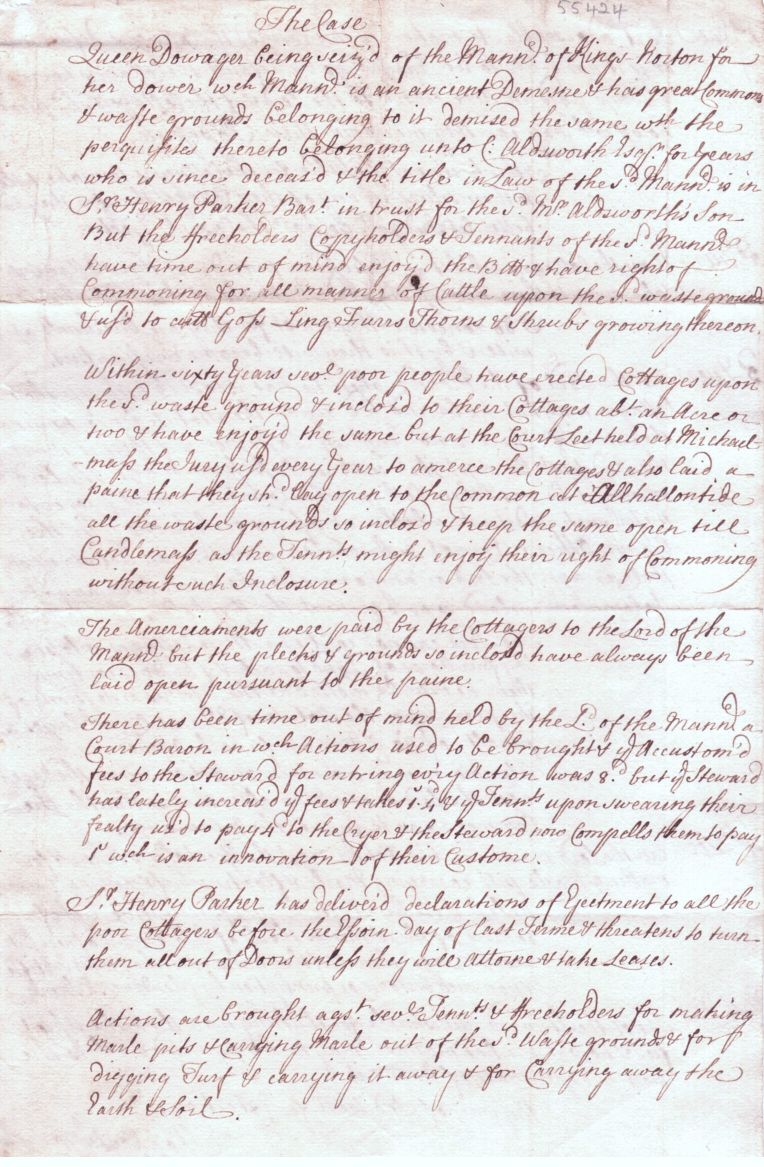 55424
The Case
Queen Dowager being seiz'd of the Mannr. of Kings Norton for
her dower wch Mannr. is an ancient Demesne & has great Commons
& waste grounds belonging to it demised the same wth the
perquisites thereto belonging unto C: Aldsworth Esqr. for years
who is since deceas'd & the title in Law of the sd. Mannr. is in
Sr. Henry Parker Bart. in trust for the sd. Mr. Aldsworth's Son
But the ffreeholders Copyholders & Tennants of the sd. Mannr.
have time out of mind enjoy'd the & have right of
Commoning for all manner of Cattle upon the sd. waste ground
& us'd to cutt Goss Ling Furrs Thorns & Shrubs growing thereon.
Within sixty years sevl. poor people have erected Cottages upon
the sd. waste ground & inclos'd to their Cottages abt. an Acre or
two & have enjoy'd the same but at the Court Leet held at Michael-
-mass the Jury us'd every Year to amerce the Cottages & also laid a
paine that they shd. lay open to the Common at Allhallontide
all the waste grounds so inclos'd & keep the same open till
Candlemass as the Tennts might enjoy their right of Commoning
without such Inclosure.
The Amerciaments were paid by the Cottagers to the Lord of the
Mannr. but the plecks & grounds so inclos'd have always been
laid open pursuant to the paine.
There has been time out of mind held by the Ld. of the Mannr. a
Court Baron in wch Actions used to be brought & ye Accustom'd
fees to the Steward for entring ev'ry Action was 8d. but ye Steward
has lately increas'd ye fees & takes & ye Tennts upon swearing their
fealty us'd to pay 4d. to the Cryer & the Steward now Compells them to pay
1s wch is an innovation of their Custome.
Sr. Henry Parker has deliver'd declarations of Ejectment to all the
poor Cottagers before the Essoin day of last Terme & threatens to turn
them all out of Doors unless they will Attorne & take Leases.
Actions are brought agst. sevl. Tennts & ffreeholders for making
Marle pits & Carrying Marle out of the sd. Waste grounds & for
digging Turf & carrying it away & for Carrying away the
Earth & Soil.